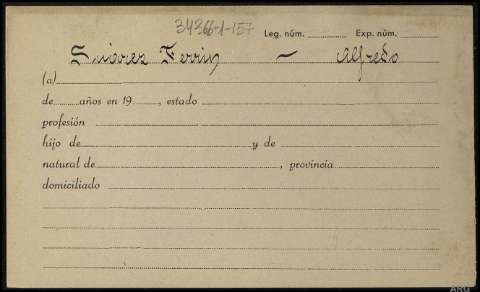 34366-1-157
Leg. núm. Exp. núm.
Suárez Ferrín — Alfredo
(a)
de años en 19, estado
profesión
hijo de y de
natural de, provincia
domiciliado
ARG